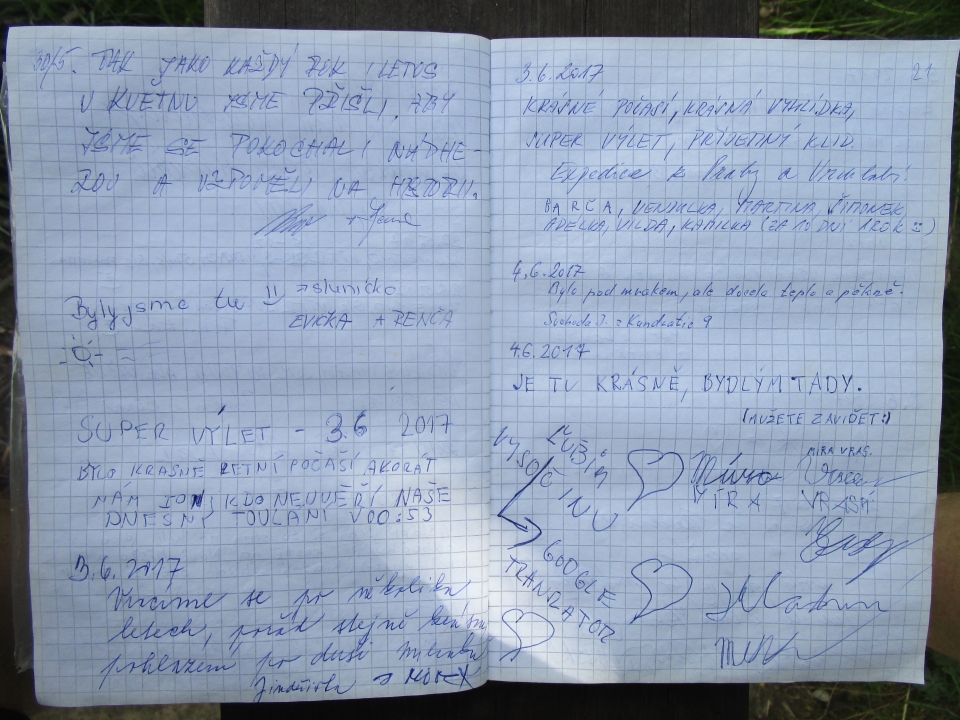 30/5. TAK JAKO KAŽDÝ ROK I LETOS
V KVĚTNU JSME PŘIŠLI, ABY
JSME SE POKOCHALI NÁDHE-
ROU A VZPOMĚLI NA HISTORII.
Byly jsme tu :) sluníčko
EVIČKA + RENČA
SUPER VÝLET - 3.6 2017
BYLO KRASNĚ LETNÍ POČAŠÍ AKORÁT
MÁM KDO NEUVĚŘÍ NAŠE
DNEŠNÍ TOULÁNÍ V 00:53
3.6.2017
Vracíme se po několika
letech, pořád stejně krásné
pohlazení po duši
Jindřiška
21
3.6.2017
KRÁSNÉ POČASÍ, KRÁSNÁ VYHLÍDKA,
SUPER VÝLET, PŘÍJEMNÝ KLID.
Expedice z Prahy a Vrchlabí!
BARČA, VENDULKA, MARTINA, ŠIMONEK,
ADELKA, VILDA, KAMILKA (ZA 10 DNÍ 1 ROK :))
4.6.2017
Bylo pod mrakem, ale docela teplo a pěkně.
Svoboda J. z Kundratic 9
4.6.2017
JE TU KRÁSNĚ, BYDLÝM TADY.
(MUŽETE ZAVIDĚT:)
VYSOČINU
GOOGLE
TRANSLATOR
MIRA VRAS.